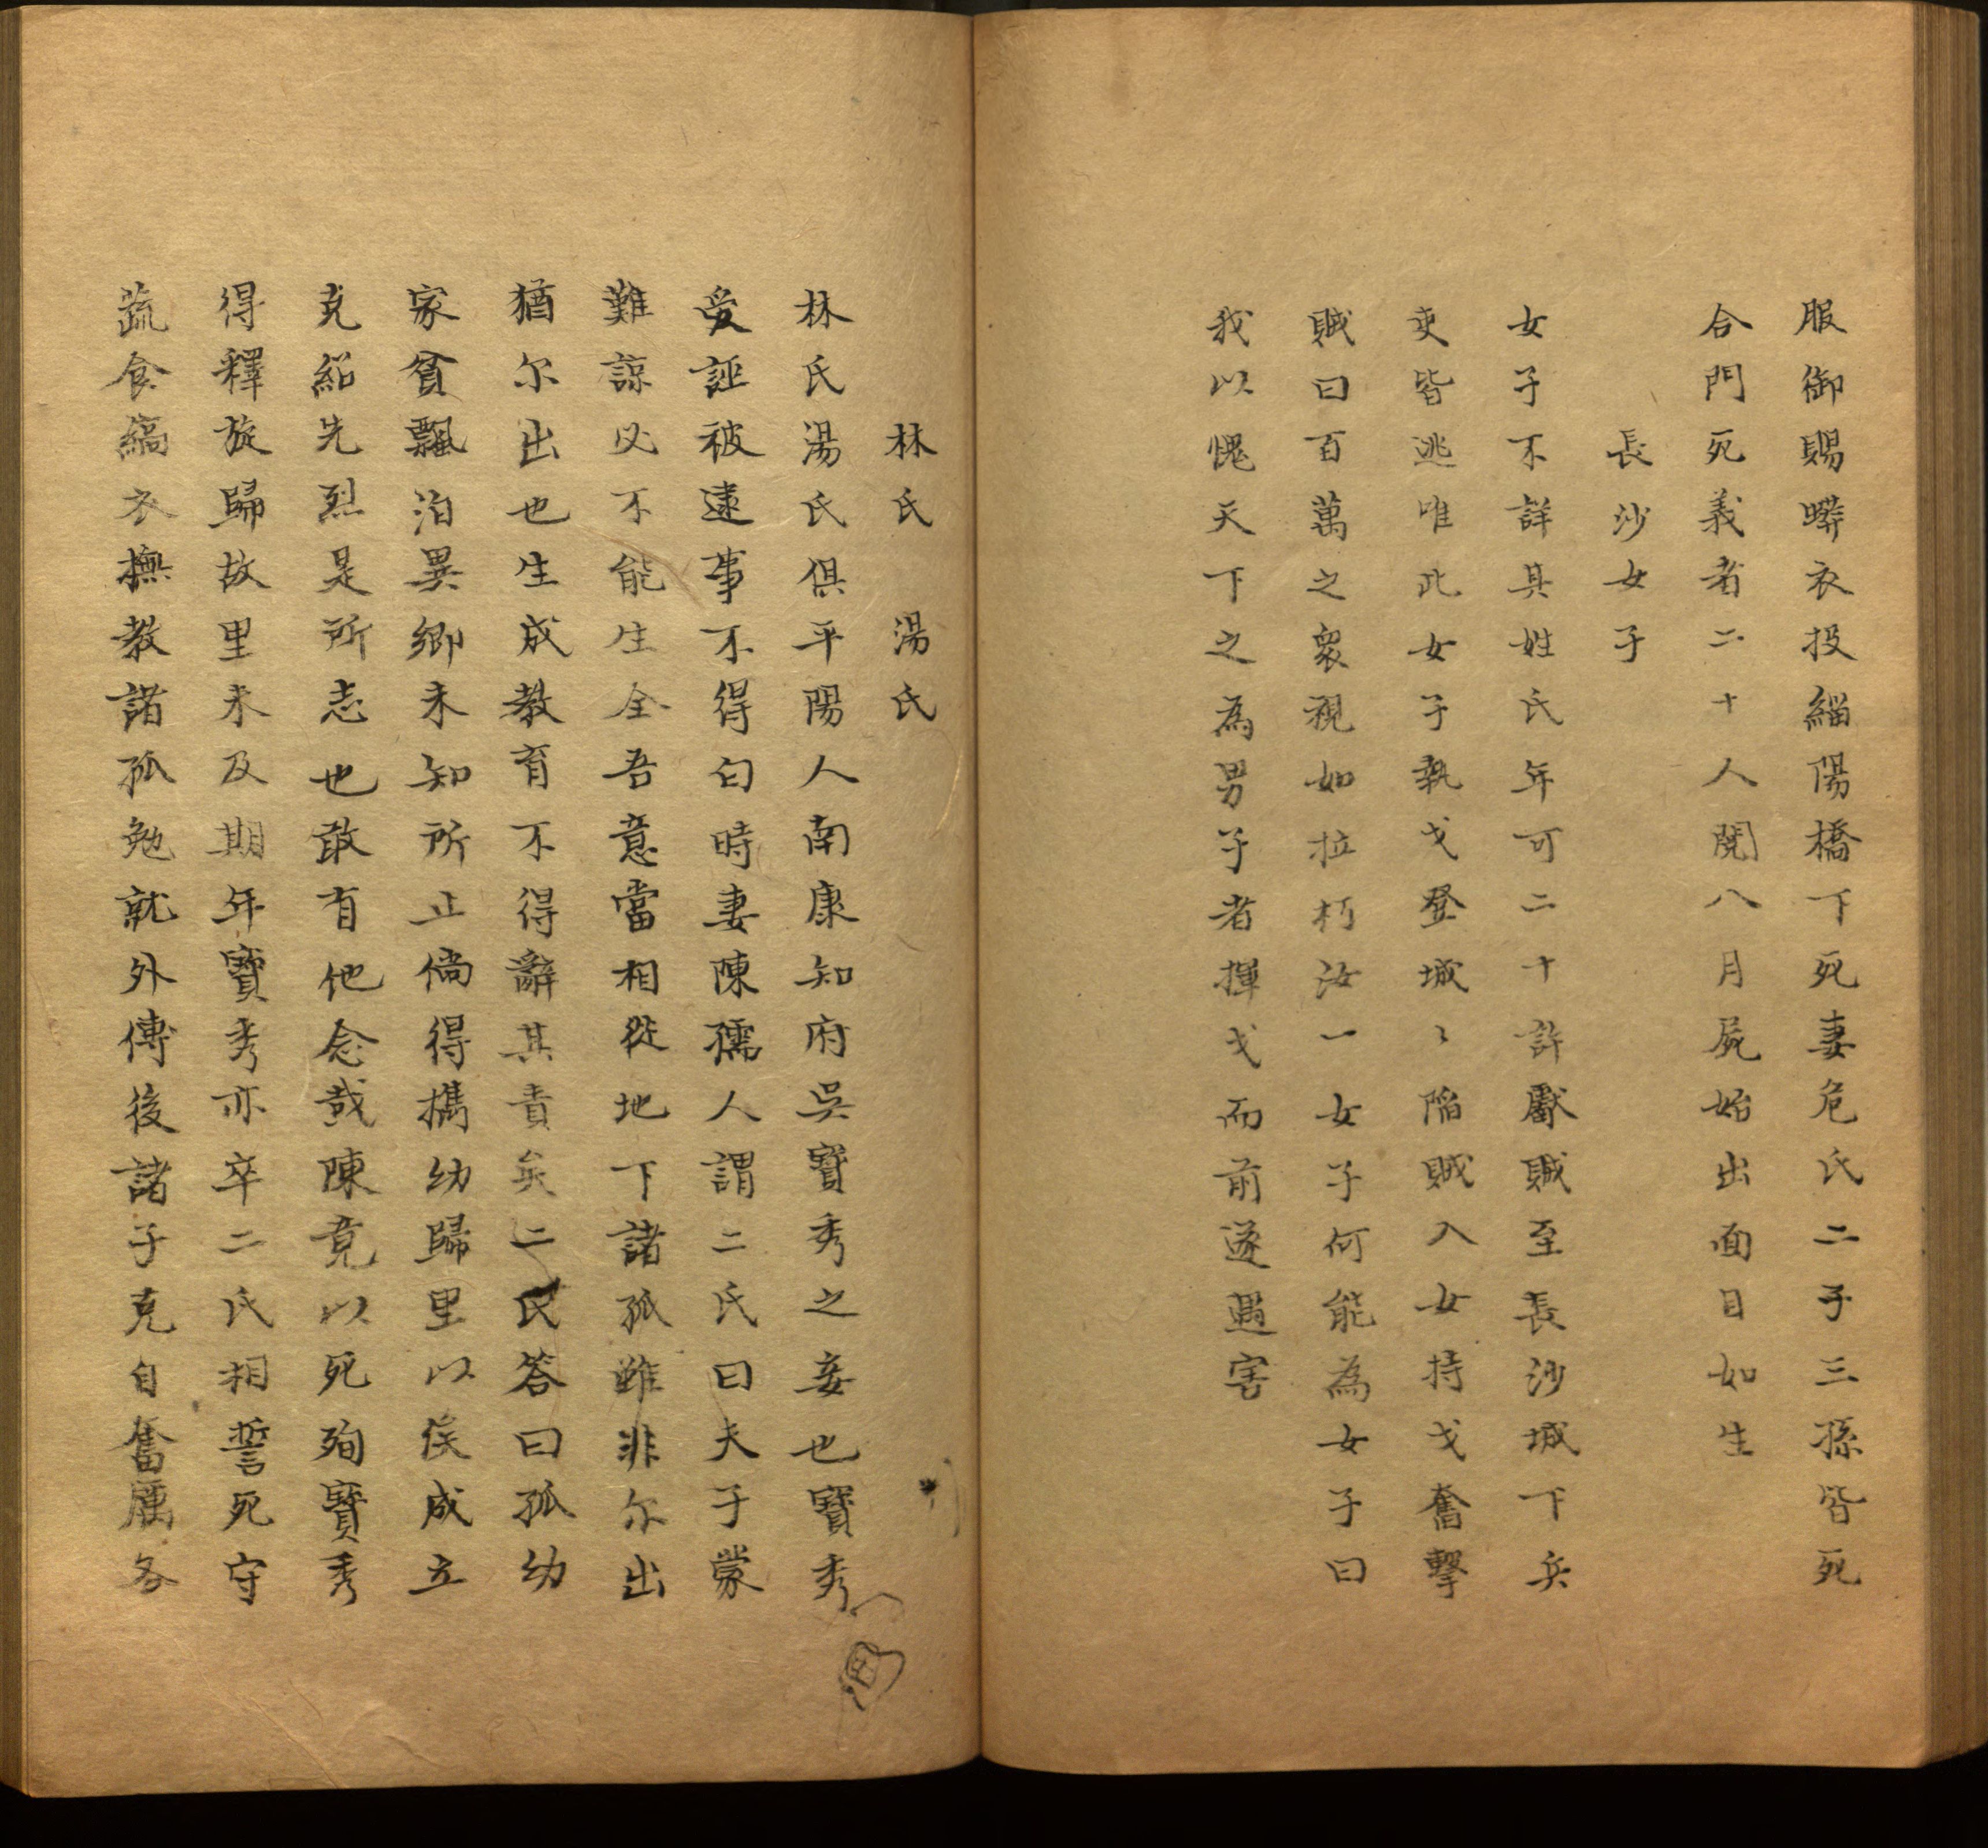 服御賜蟒衣投緇陽橋下死妻危氏二子三孫皆死
合門死義者二十人閱八月屍始出面目如生
長沙女子
女子不詳其姓氏年可二十許獻賊至長沙城下兵
吏皆逃唯此女子執戈登城〻陷賊入女持戈奮擊
賊曰百萬之衆視如拉朽汝一女子何能為女子曰
我以愧天下之為男子者揮戈而前遂遇害
林氏 湯氏
林氏湯氏俱平陽人南康知府吳寶秀之妾也寶秀
受誣被逮事不得白時妻陳孺人謂二氏曰夫子蒙
難諒必不能生全吾意當相從地下諸孤雖非尔出
猶尔出也生成教育不得辭其責矣二氏答曰孤幼
家貧飄泊異鄉未知所止倘得攜幼歸里以俟成立
克紹先烈是所志也敢有他念哉陳竟以死殉寶秀
得釋旋歸故里未及期年寶秀亦卒二氏相誓死守
蔬食縞衣撫教諸孤勉就外傅後諸子克自奮厲各